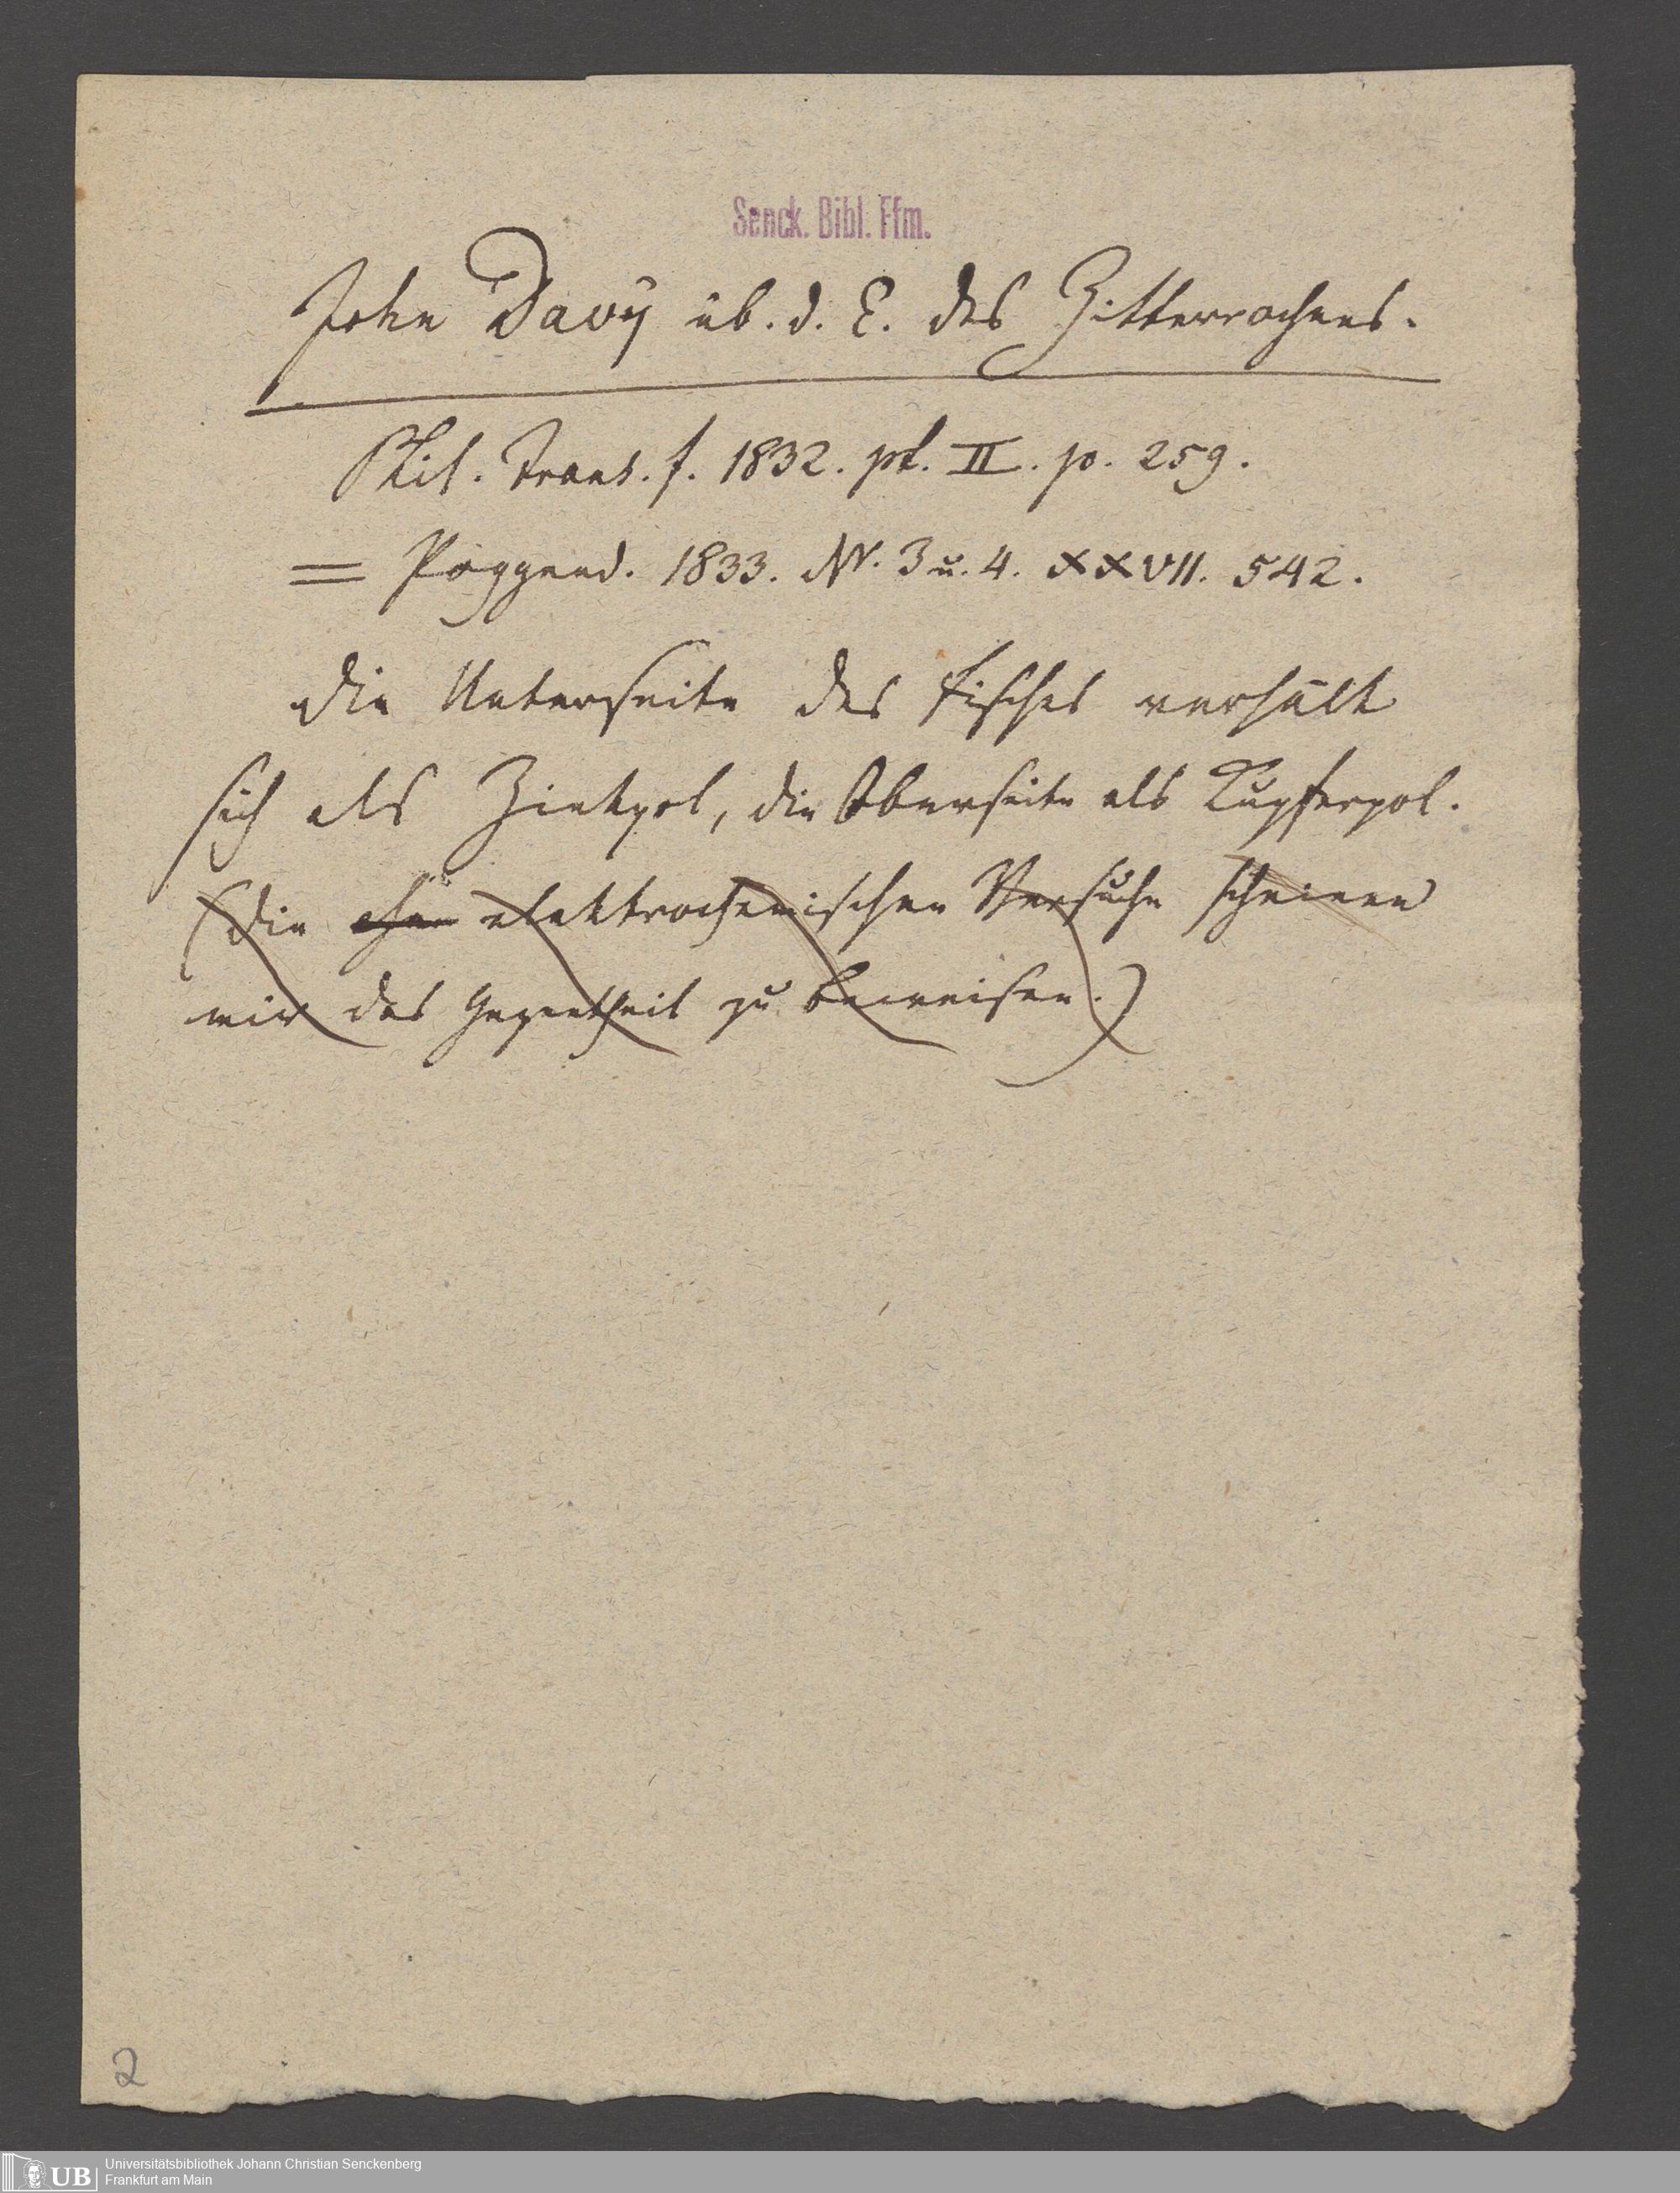 Senck. Bibl. Ffm.
John Davy üb. d. E. des Zitterrochens.
Phil. Trans. f. 1832. pt. II. p. 259.
= Poggend. 1833. Nr. 3 u. 4. XXVII. 542.
Die Unterseite des Fisches verhält
sich als Zinkpol, die Oberseite als Kupferpol.
(Die che elektrochemischen Versuche scheinen
mir das Gegentheil zu beweisen.)
2
UB
Universitätsbibliothek Johann Christian Senckenberg
Frankfurt am Main